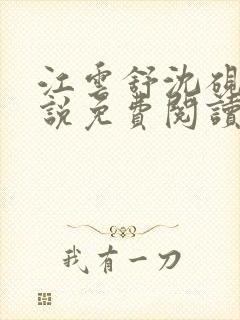 江雲舒沈硯
說免費閱讀
我有一刀